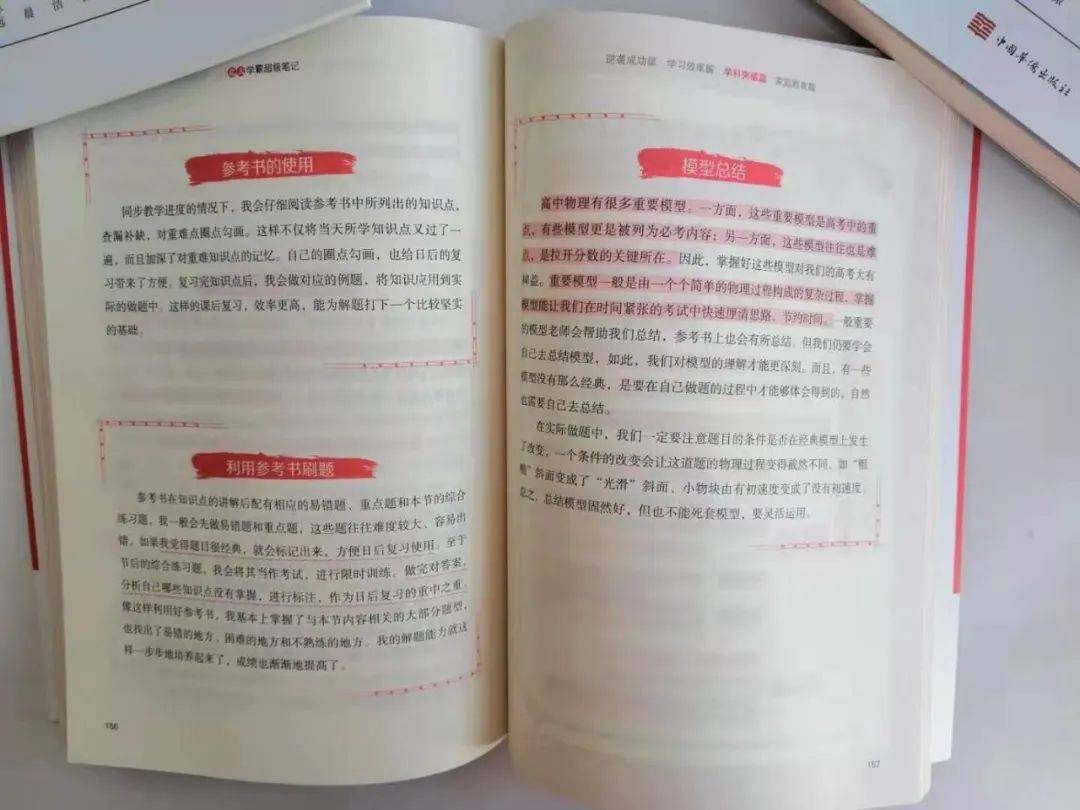 晨洁
中国华侨出版社
学霸超级笔记
参考书的使用
同步教学进度的情况下，我会仔细阅读参考书中所列出的知识点，
查漏补缺，对重难点圈点勾画。这样不仅将当天所学知识点又过了一
遍，而且加深了对重难知识点的记忆。自己的圈点勾画，也给日后的复
习带来了方便。复习完知识点后，我会做对应的例题，将知识应用到实
际的做题中。这样的课后复习，效率更高，能为解题打下一个比较坚实
的基础。
利用参考书刷题
参考书在知识点的讲解后配有相应的易错题、重点题和本节的综合
练习题。我一般会先做易错题和重点题，这些题往往难度较大、容易出
错。如果我觉得题目很经典，就会标记出来，方便日后复习使用。至于
节后的综合练习题，我会将其当作考试，进行限时训练。做完对答案，
分析自己哪些知识点没有掌握，进行标注，作为日后复习的重中之重。
像这样利用好参考书，我基本上掌握了与本节内容相关的大部分题型，
也找出了易错的地方、困难的地方和不熟练的地方。我的解题能力就这
样一步步地培养起来了，成绩也渐渐地提高了。
156
逆袭成功篇 学习效率篇 学科突破篇 家庭教育篇
模型总结
高中物理有很多重要模型。一方面，这些重要模型是高考中的重
点，有些模型更是被列为必考内容；另一方面，这些模型往往也是难
点，是拉开分数的关键所在。因此，掌握好这些模型对我们的高考大有
裨益。重要模型一般是由一个个简单的物理过程构成的复杂过程，掌握
模型能让我们在时间紧张的考试中快速厘清思路，节约时间。一般重要
的模型老师会帮助我们总结，参考书上也会有所总结。但我们仍要学会
自己去总结模型，如此，我们对模型的理解才能更深刻。而且，有一些
模型没有那么经典，是要在自己做题的过程中才能够体会得到的，自然
也需要自己去总结。
在实际做题中，我们一定要注意题目的条件是否在经典模型上发生
了改变，一个条件的改变会让这道题的物理过程变得截然不同。如“粗
糙”斜面变成了“光滑”斜面、小物块由有初速度变成了没有初速度。
总之，总结模型固然好，但也不能死套模型，要灵活运用。
157